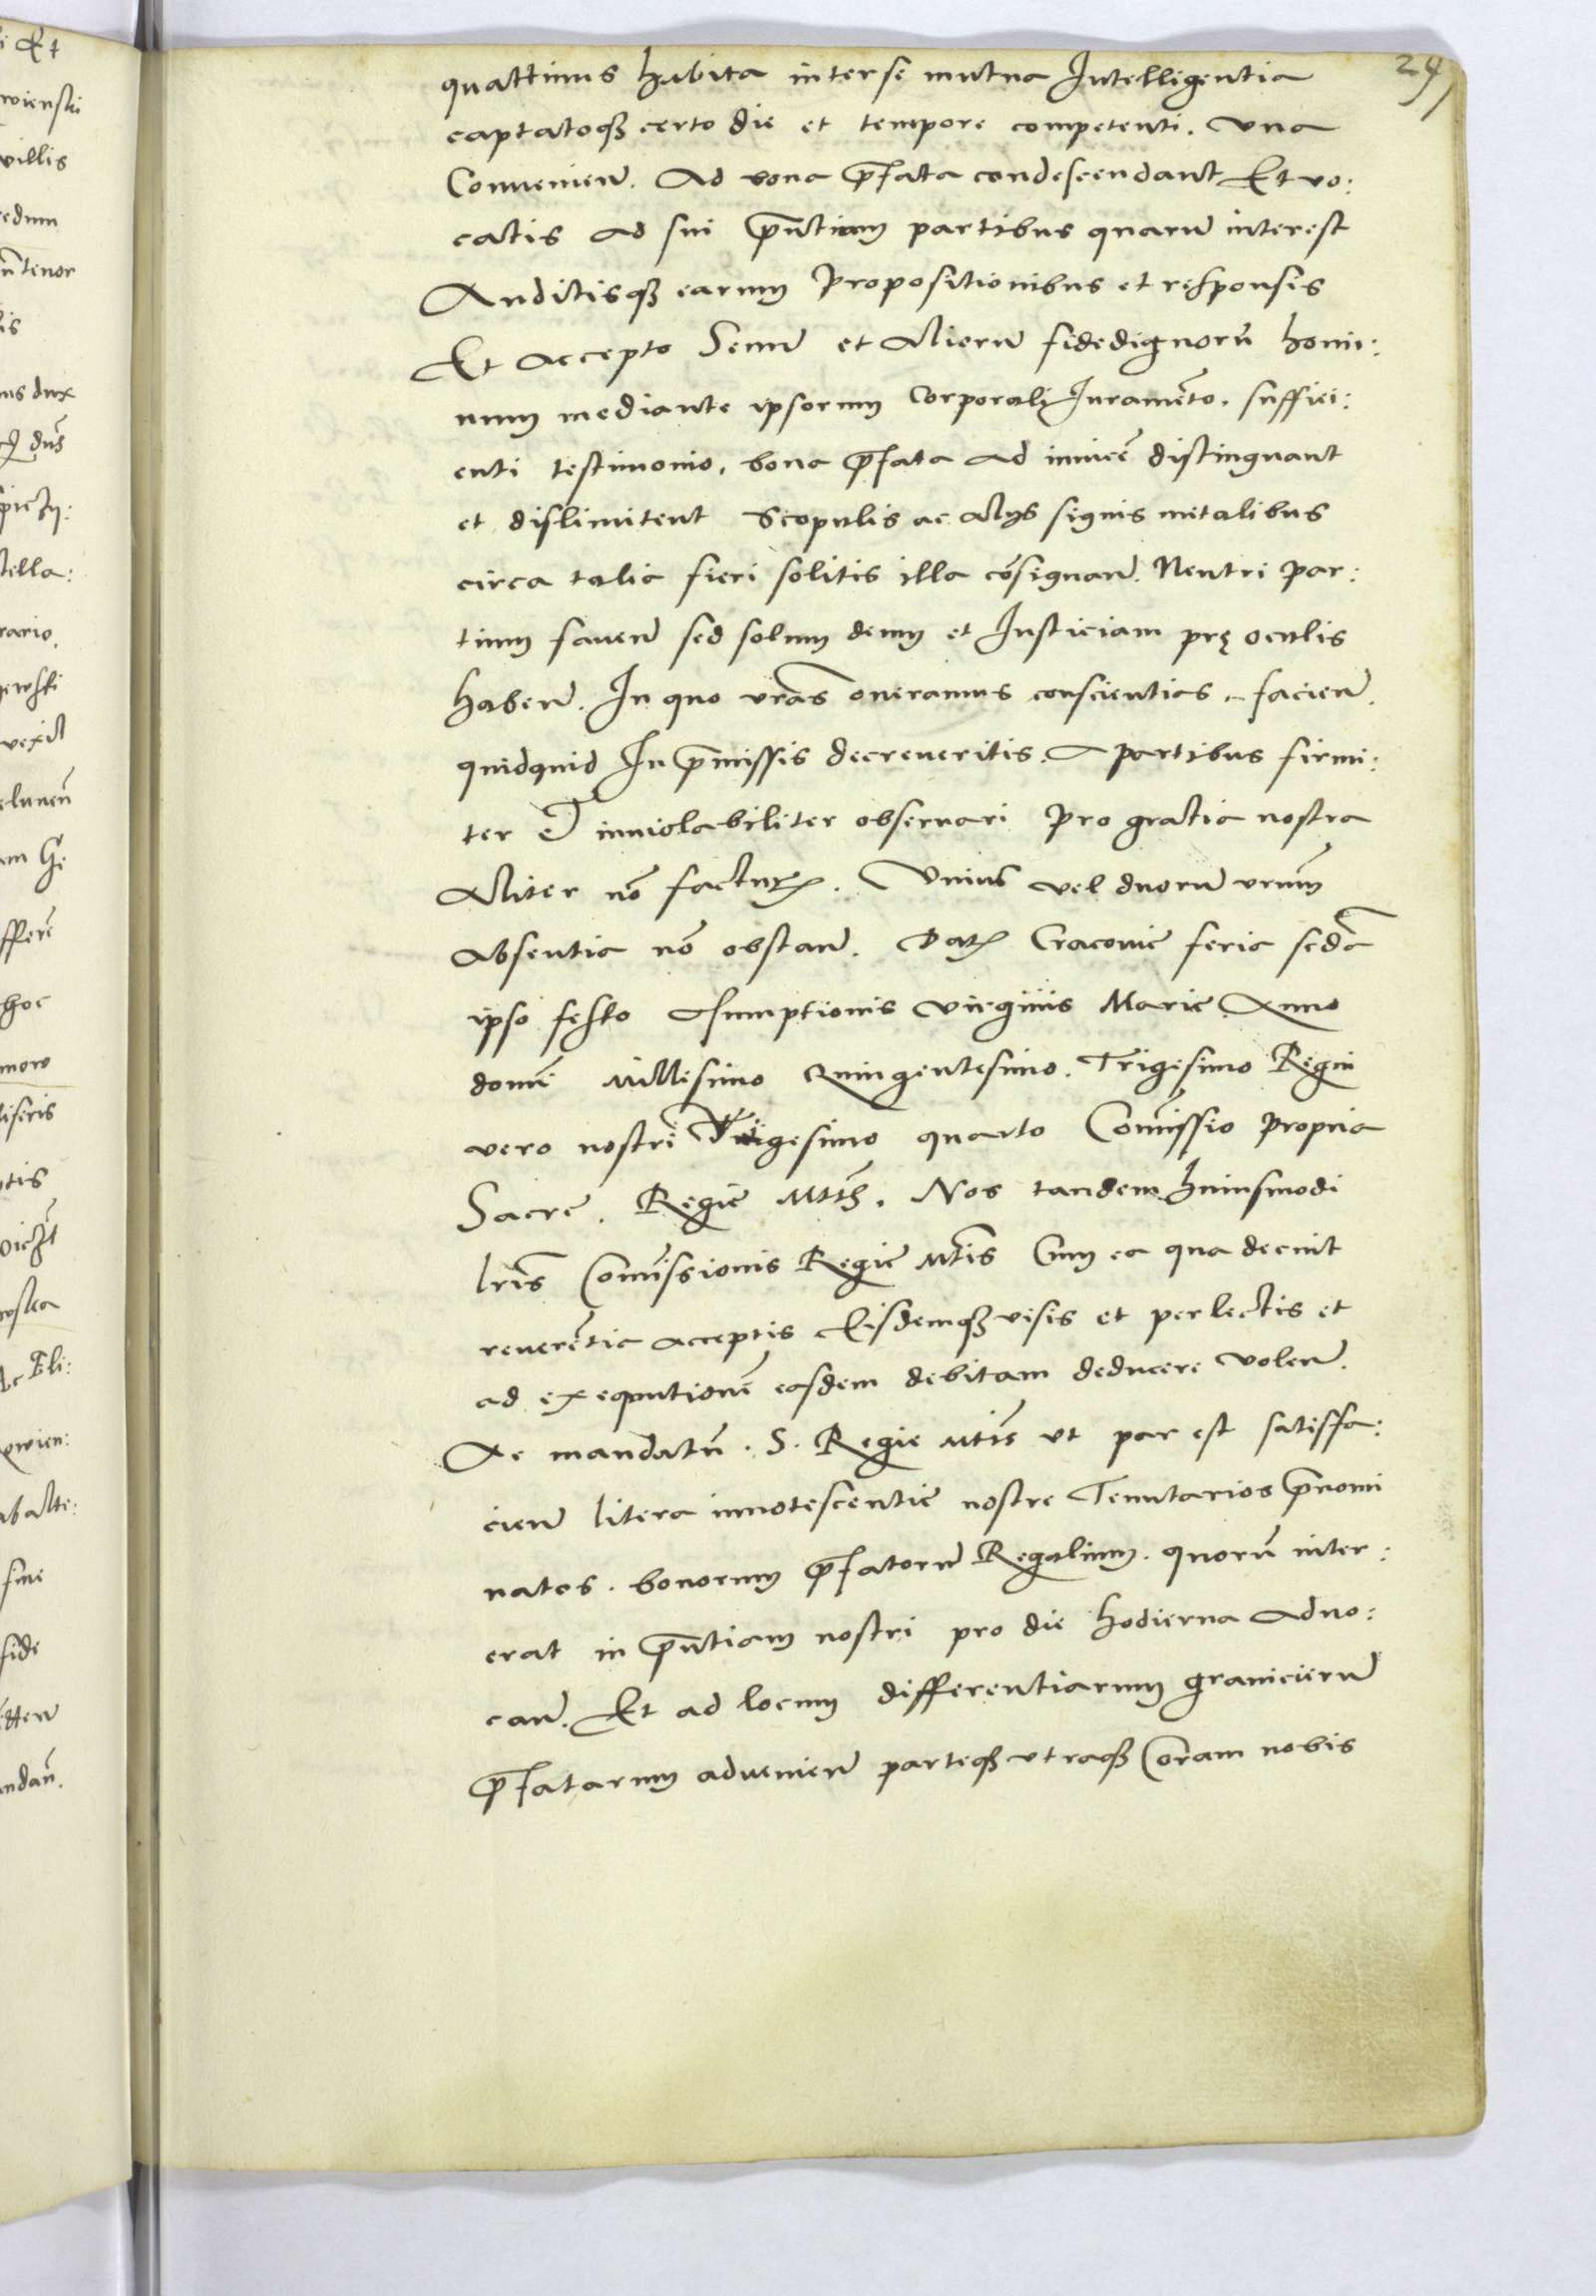 24
quattinus habita inter se mutua Intelligentia
captatoqz certo die et tempore competenti. Una
Convenien̄. Ad bona p̄fata condescendant Et vo:
catis ad sui p̄ntiam partibus quarū interest
Auditisqz earum Propositionibus et responsis
Et accepto Senū et Aliorū fidedignorū homi:
num mediante ipsorum Corporali Juramēto. suffici:
enti testimonio, bona p̄fata ad invicē distinguant
et dislimitent Scopulis ac Alys signis metalibus
circa talia fieri solitis illa cōsignan̄. Neutri par:
tium faven̄ sed solum deum et Iusticiam prę oculis
haben̄. In quo vr̄as oneramus conscientias. facien̄.
quidquid In p̄missis decreveritis. A partibus firmi:
ter et inviolabiliter observari pro gratia nostra
Aliter nō factur. Unius vel duorū vrūm
Absentia nō obstan̄. Dat Cracovie feria scd̄a
ipso festo Assumptionis virginis Marie Anno
domi̅ Millesimo Quingentesimo. Trigesimo Regni
vero nostri vigesimo quarto Com̄issio propria
Sacre. Regie Mtts. Nos tandem huiusmodi
lr̄is Com̄issionis Regie Mt̄is Cum ea qua decuit
reverētia acceptis Eisdemqz visis et perlectis et
ad exeqputionē easdem debitam deducere volen̄.
Ac mandatū. S. Regie Mt̄is ut par est satisfa:
cien̄ litera innotescentie nostre Tenutarios p̄nomi
natos. bonorum p̄fatorū Regalium. quorū inter:
erat in p̄ntiam nostri pro die hodierna advo:
can̄. Et ad locum differentiarum granicierū
p̄fatarum advenien̄ parteqz utraqz Coram nobis